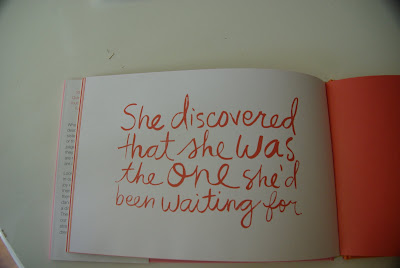 She discovered
that she was
the one she'd
been waiting for